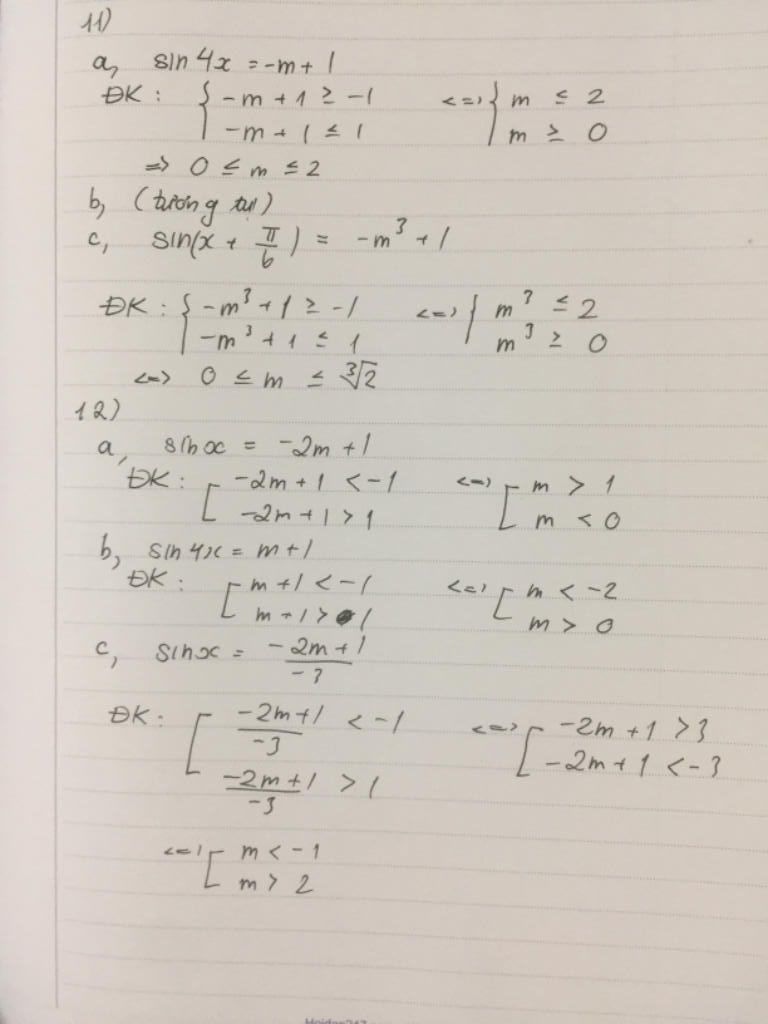 11)
a, sin 4x = -m + 1
ĐK : { -m + 1 ≥ -1 <=> { m ≤ 2
-m + 1 ≤ 1 m ≥ 0
=> 0 ≤ m ≤ 2
b, (tương tự)
c, sin(x + π/6) = -m³ + 1
ĐK : { -m³ + 1 ≥ -1 <=> { m³ ≤ 2
-m³ + 1 ≤ 1 m³ ≥ 0
<=> 0 ≤ m ≤ ∛2
12)
a, sin x = -2m + 1
ĐK : [ -2m + 1 < -1 <=> [ m > 1
-2m + 1 > 1 m < 0
b, sin 4x = m + 1
ĐK : [ m + 1 < -1 <=> [ m < -2
m + 1 > 1 m > 0
c, sin x = (-2m + 1)/(-3)
ĐK : [ (-2m + 1)/(-3) < -1 <=> [ -2m + 1 > 3
(-2m + 1)/(-3) > 1 -2m + 1 < -3
<=> [ m < -1
m > 2